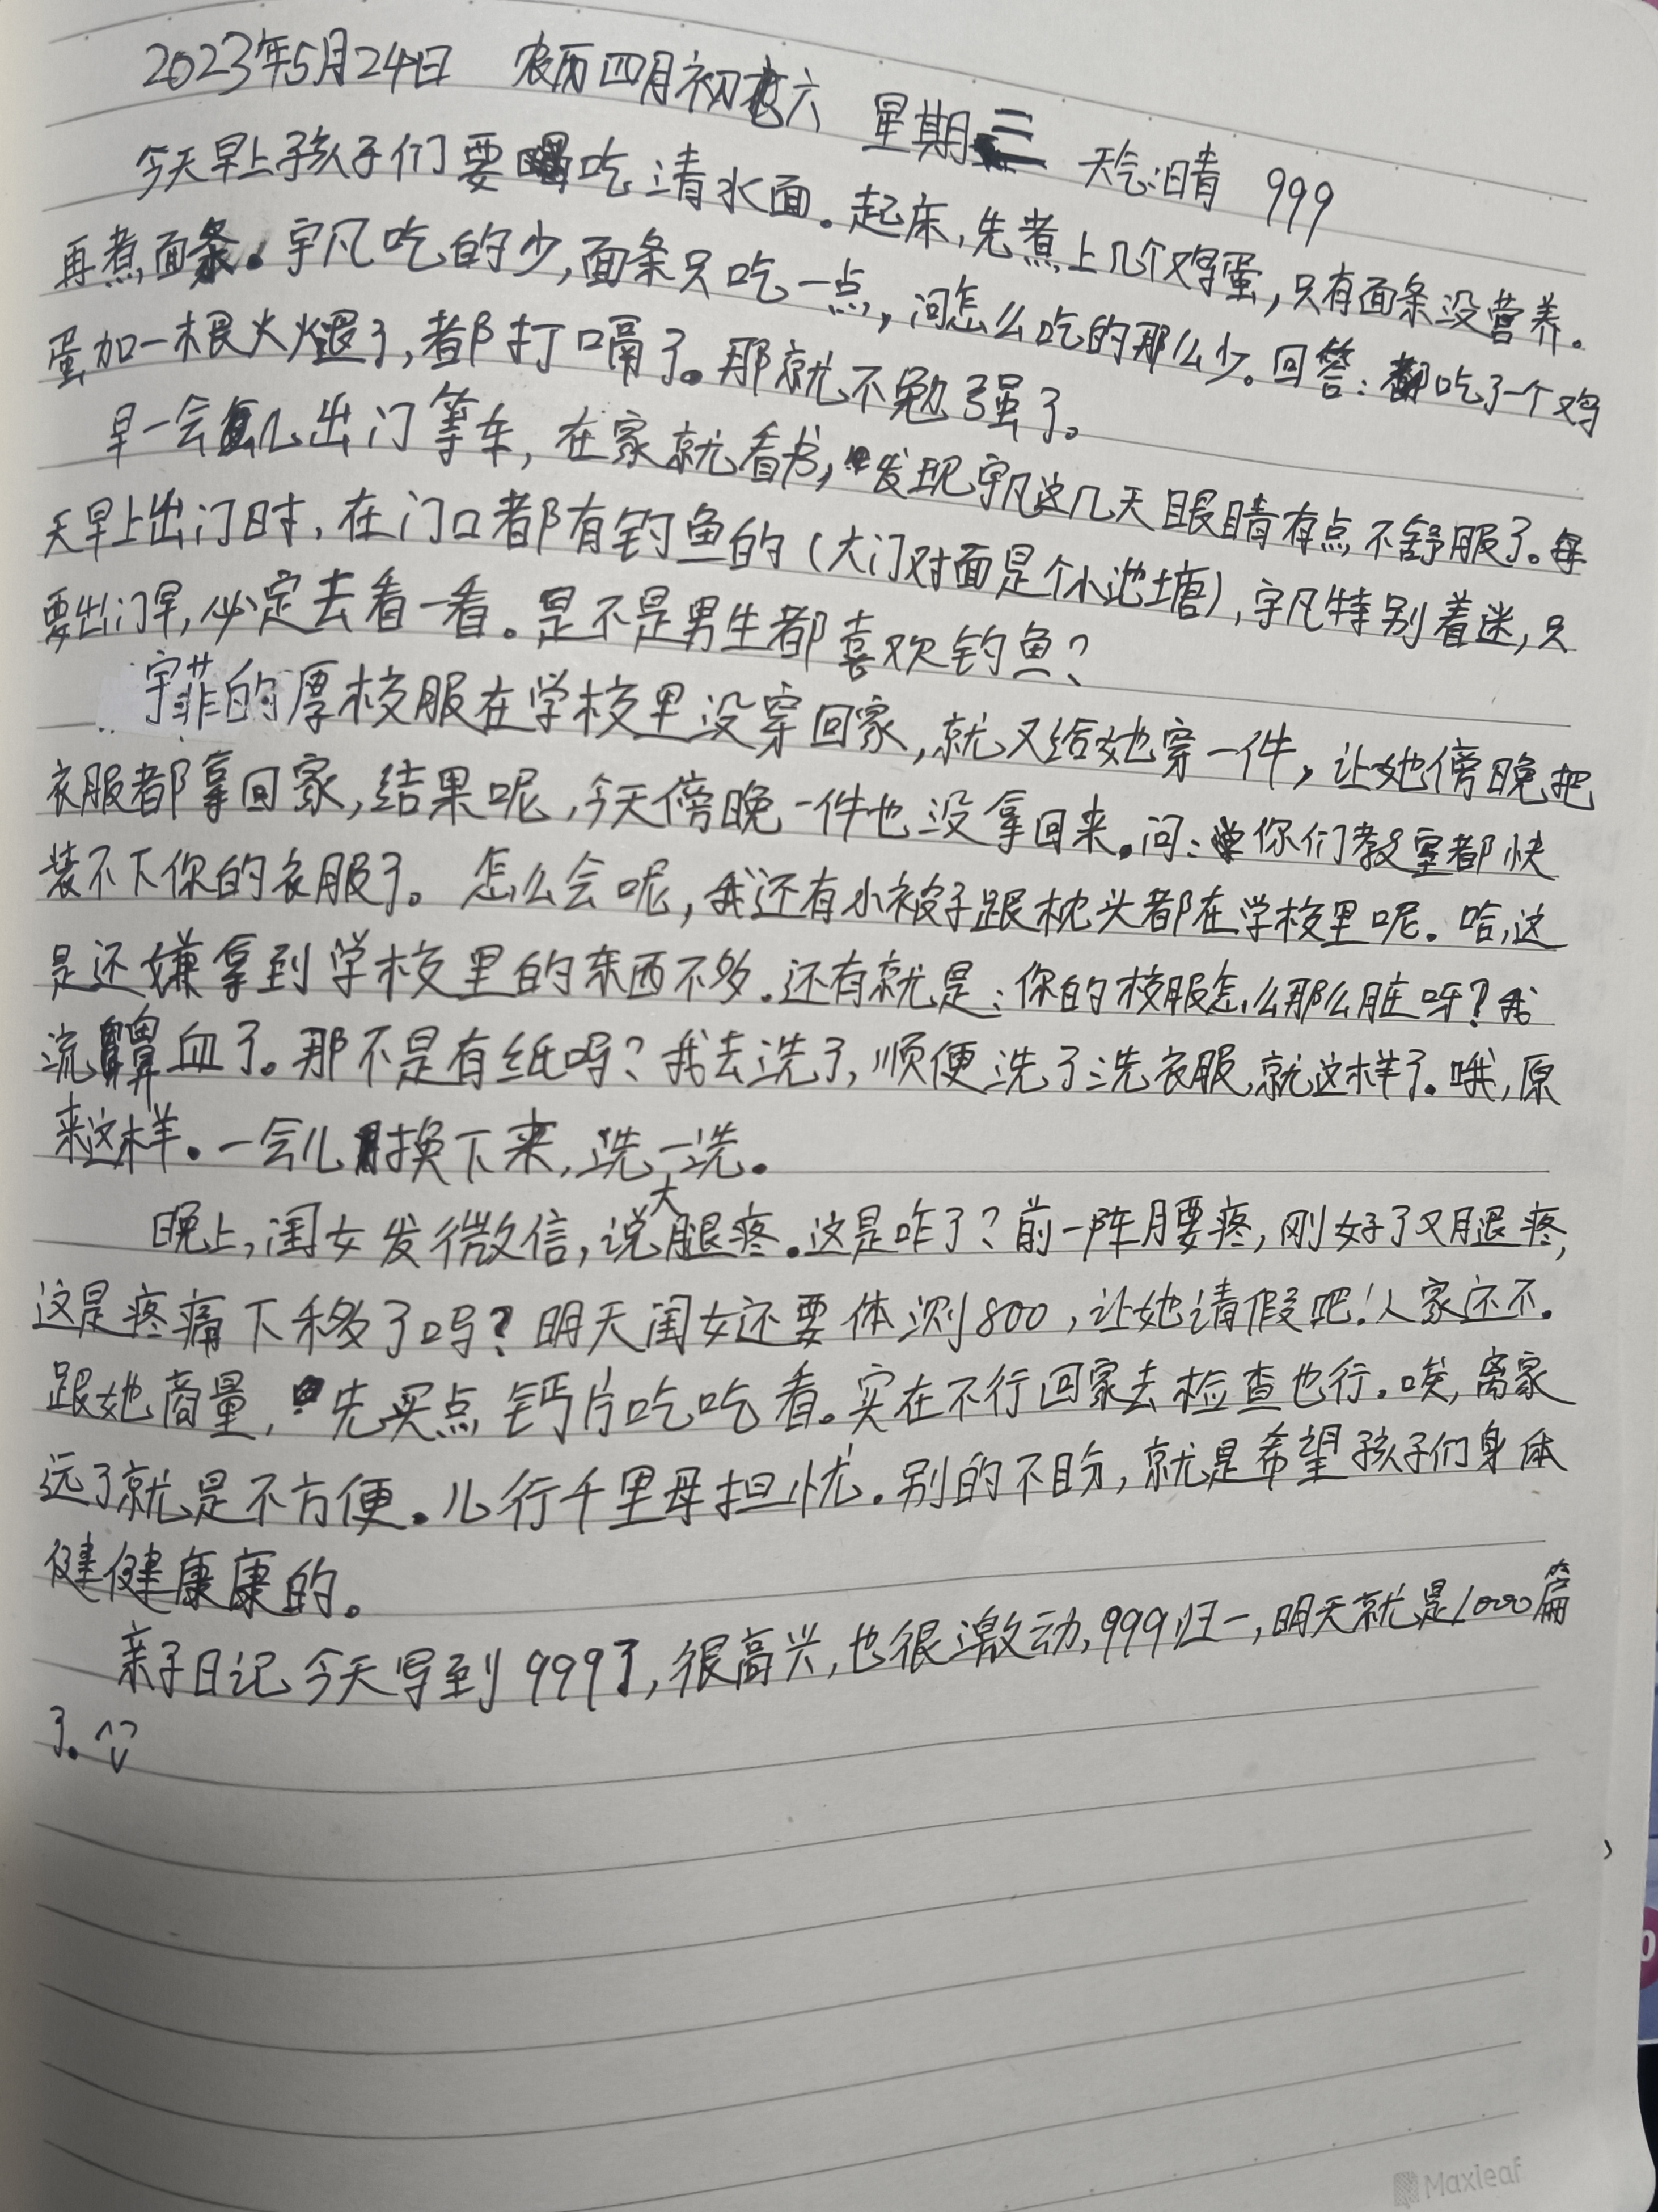 2023年5月24日 农历四月初六 星期三 天气:晴 999
今天早上孩子们要吃清水面。起床,先煮上几个鸡蛋,只有面条没营养。
再煮面条。宇凡吃的少,面条只吃一点,问怎么吃的那么少。回答:都吃了一个鸡
蛋加一根火腿了,都打嗝了。那就不勉强了。
早一会儿出门等车,在家就看书,发现宇凡这几天眼睛有点不舒服了。每
天早上出门时,在门口都有钓鱼的(大门对面是个小池塘),宇凡特别着迷,只
要出门早,必定去看一看。是不是男生都喜欢钓鱼?
宇菲的厚校服在学校里没穿回家,就又给她穿一件,让她傍晚把
衣服都拿回家,结果呢,今天傍晚一件也没拿回来。问:你们教室都快
装不下你的衣服了。怎么会呢,我还有小被子跟枕头都在学校里呢。哈,这
是还嫌拿到学校里的东西不多。还有就是:你的校服怎么那么脏呀?我
流鼻血了。那不是有纸吗?我去洗了,顺便洗了洗衣服,就这样了。哦,原
来这样。一会儿换下来,洗一洗。
晚上,闺女发微信,说大腿疼。这是咋了?前一阵腰疼,刚好了又腿疼,
这是疼痛下移了吗?明天闺女还要体测800,让她请假吧!人家还不。
跟她商量,先买点钙片吃吃看。实在不行回家去检查也行。唉,离家
远了就是不方便。儿行千里母担忧。别的不盼,就是希望孩子们身体
健健康康的。
亲子日记今天写到999了,很高兴,也很激动,999归一,明天就是1000篇
了。
Maxleaf